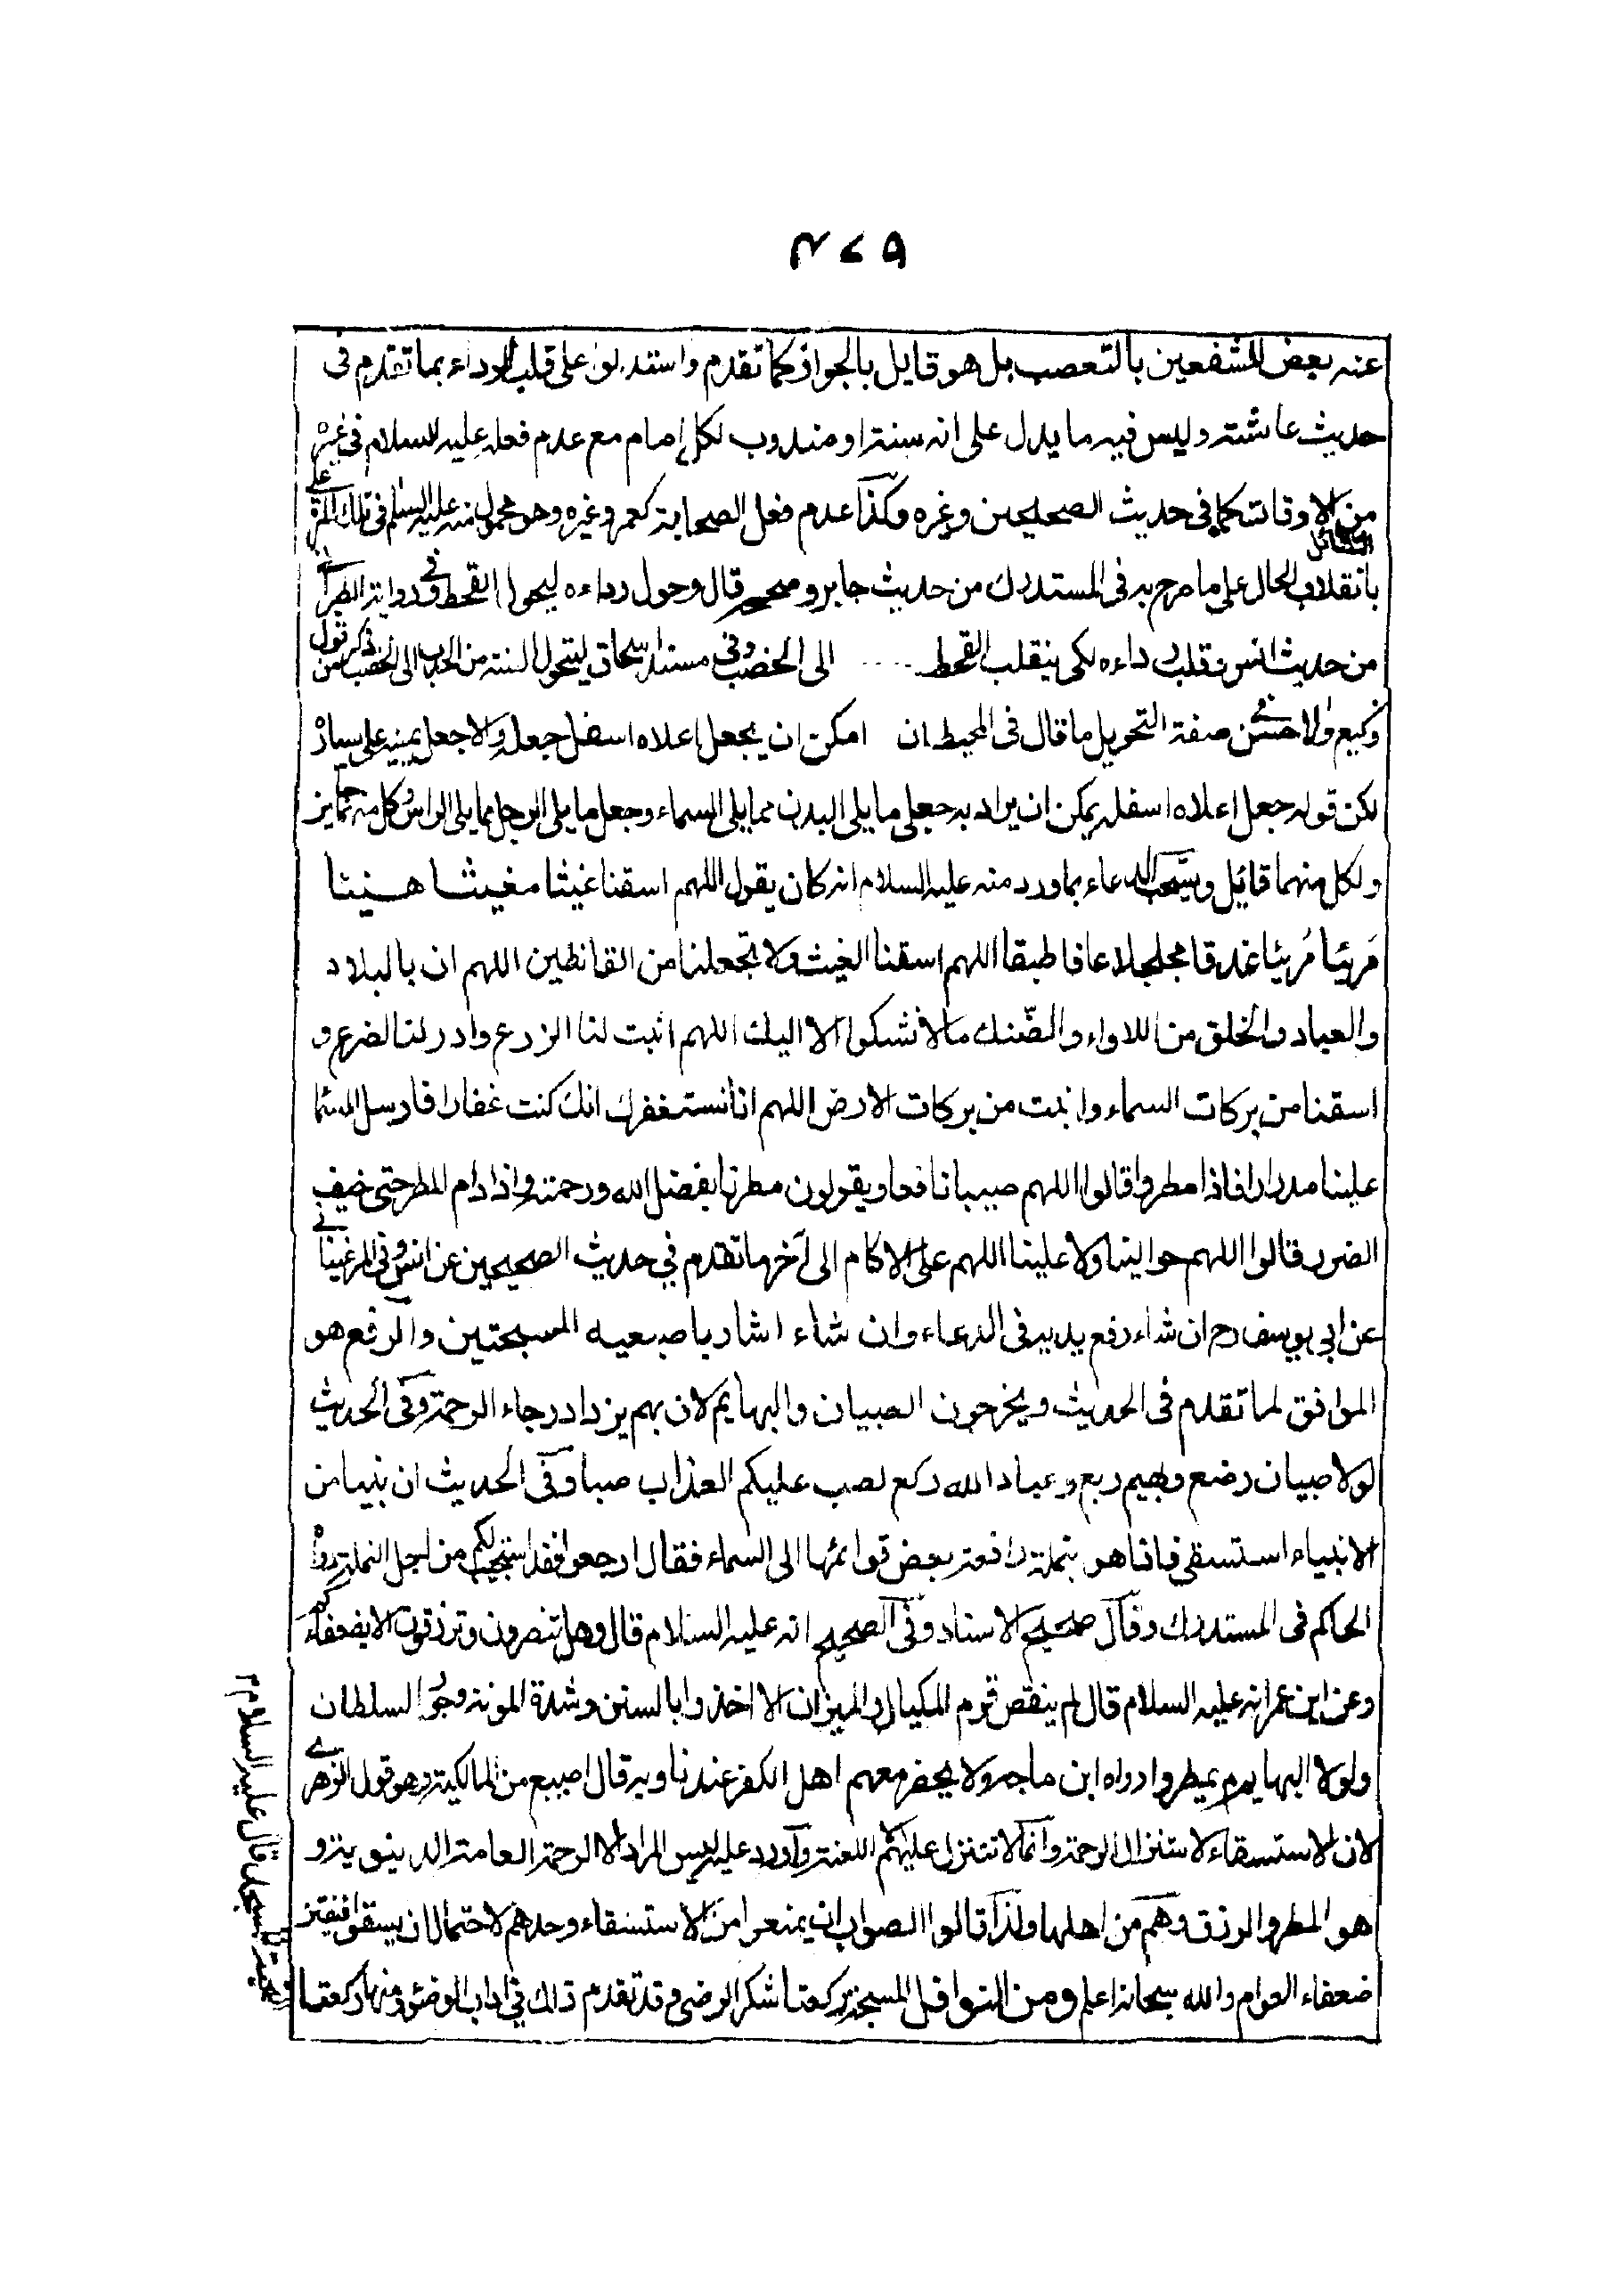 ٤٢٩
عنه بعض المشنعين بالتعصب بل هو قايل بالجواز كما تقدم واستدلوا على قلب الرداء بما تقدم فى
حديث عائشة وليس فيه ما يدل على انه سنة او مندوب لكل امام مع عدم فعله عليه السلام فى غيره
من الاوقات كما فى حديث الصحيحين وغيره وكذا عدم فعل الصحابة كعمر وغيره وهو محمول منه عليه السلم فى تلك المرة على التفائل
بانقلاب الحال على ما صرح به فى المستدرك من حديث جابر وصححه قال وحول رداءه ليتحول القحط وفى رواية الطبرانى
من حديث انس وقلب رداءه لكى ينقلب القحط .... الى الخصب وفى مسند اسحاق لتتحول السنة من الجدب الى الخصب ذكره من قول
وكيع والاحسن فى صفة التحويل ما قال فى المحيط ان امكن ان يجعل اعلاه اسفل جعله والا جعل يمينه على يساره
لكن قوله جعل اعلاه اسفله يمكن ان يراد به جعل ما يلى البدن مما يلى السماء وجعل ما يلى الرجل مما يلى الراس وكل منهما جايز
ولكل منهما قائيل ويستحب الدعاء بما ورد منه عليه السلام انه كان يقول اللهم اسقنا غيثا مغيثا هنيئا
مَريئا مُريئا غدقا مجلجلا عاما طبقا اللهم اسقنا الغيث ولا تجعلنا من القانطين اللهم ان بالبلاد
والعباد والخلق من اللاواء والضّنك ما لا نشكوا الا اليك اللهم انبت لنا الزرع وادر لنا الضرع و
اسقنا من بركات السماء وانبت من بركات الارض اللهم انا نستغفرك انك كنت غفارا فارسل السماء
علينا مدرارا فاذا مطروا قالوا اللهم صيبا نافعا ويقولون مطرنا بفضل الله ورحمته واذا دام المطر حتى خيف
الضرر قالوا اللهم حوالينا ولا علينا اللهم على الاكام الى آخر ما تقدم فى حديث الصحيحين عن انس وفى المرغينانى
عن ابى يوسف رح ان شاء رفع يديه فى الدعاء وان شاء اشار باصبعيه المسبحتين والرفع هو
الموافق لما تقدم فى الحديث ويخرجون الصبيان والبهايم لان بهم يزداد رجاء الرحمة وفى الحديث
لولا صبيان رضع وبهيم رتع وعباد الله ركع لصب عليكم العذاب صبا وفى الحديث ان نبيا من
الانبياء استسقى فاذا هو بنملة رافعة بعض قوائمها الى السماء فقال ارجعوا فقد استجيب لكم من اجل النملة رواه
الحاكم فى المستدرك وقال صحيح الاسناد وفى الصحيح انه عليه السلام قال وهل تنصرون وترزقون الا بضعفائكم
وعن ابن عمر انه عليه السلام قال لم ينقص قوم المكيال والميزان الا اخذوا بالسنن وشدة المونة وجور السلطان
ولولا البهايم لم يمطروا رواه ابن ماجه ولا يحضر معهم اهل الكفر عندنا وبه قال اصبغ من المالكية وهو قول الزهرى
لان الاستسقاء لاستنزال الرحمة وانما تتنزل عليهم اللعنة واورد عليه ليس المراد الا الرحمة العامة الدنيوية و
هو المطر والرزق وهم من اهلها ولذا قالوا الصواب ان يمنعوا من الاستسقاء وحدهم لاحتمال ان يسقوا فيفتتن
ضعفاء العوام والله سبحانه اعلم ومن النوافل المسبحة ركعتا شكر الوضوء وقد تقدم ذلك فى اداب الوضوء ومنها ركعتا
تحية المسجد قال عليه السلام